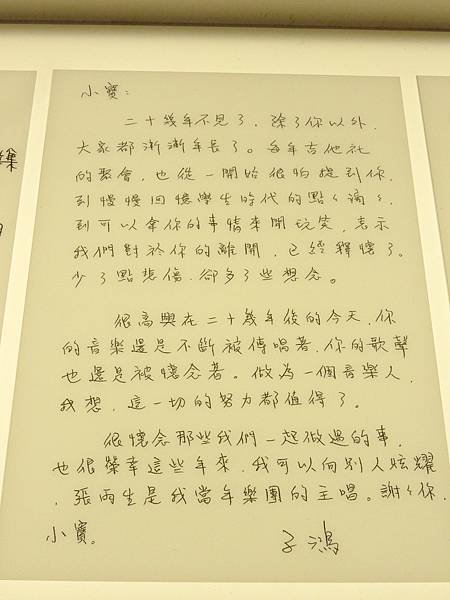 小寶：
二十幾年不見了，除了你以外，
大家都漸漸年長了。每年吉他社
的聚會，也從一開始很怕提到你，
到慢慢回憶學生時代的點〻滴〻，
到可以拿你的事情來開玩笑，表示
我們對於你的離開，已經釋懷了。
少了點悲傷，卻多了些想念。
很高興在二十幾年後的今天，你
的音樂還是不斷被傳唱著，你的歌聲
也還是被懷念著。做為一個音樂人，
我想，這一切的努力都值得了。
很懷念那些我們一起做過的事，
也很榮幸這些年來，我可以向別人炫耀
，張雨生是我當年樂團的主唱。謝〻你，
小寶。
子鴻